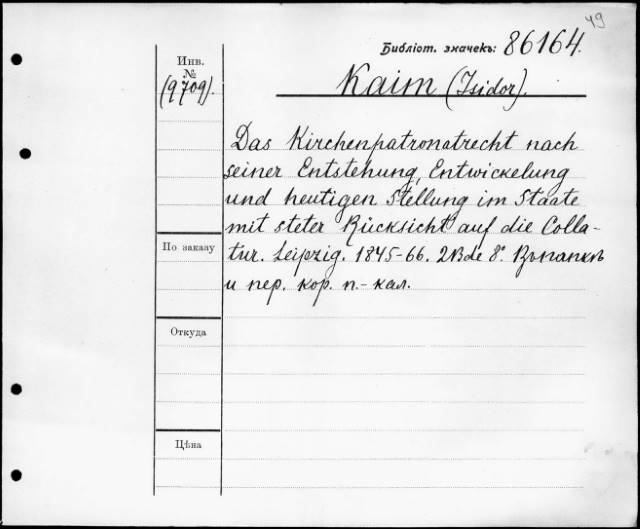 49
Библіот. значекъ: 86164.
Инв.
№
(9709).
Kaim (Isidor).
Das Kirchenpatronatrecht nach
seiner Entstehung, Entwickelung
und heutigen Stellung im Staate
mit steter Rücksicht auf die Colla-
tur. Leipzig. 1845-66. 2 Bde 8°. Въ папкѣ
и пер. кор. п.-кал.
По заказу
Откуда
Цѣна